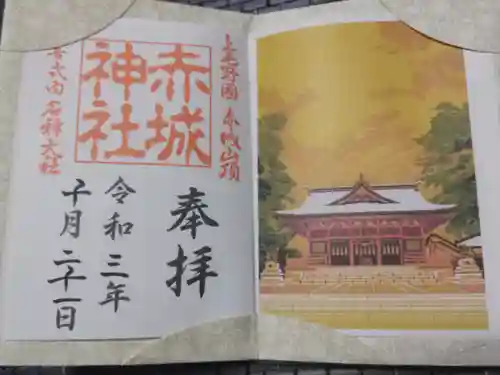 上毛野國 赤城山頂
赤城
神社
式内 名神大社
奉拝
令和三年
月二十一日